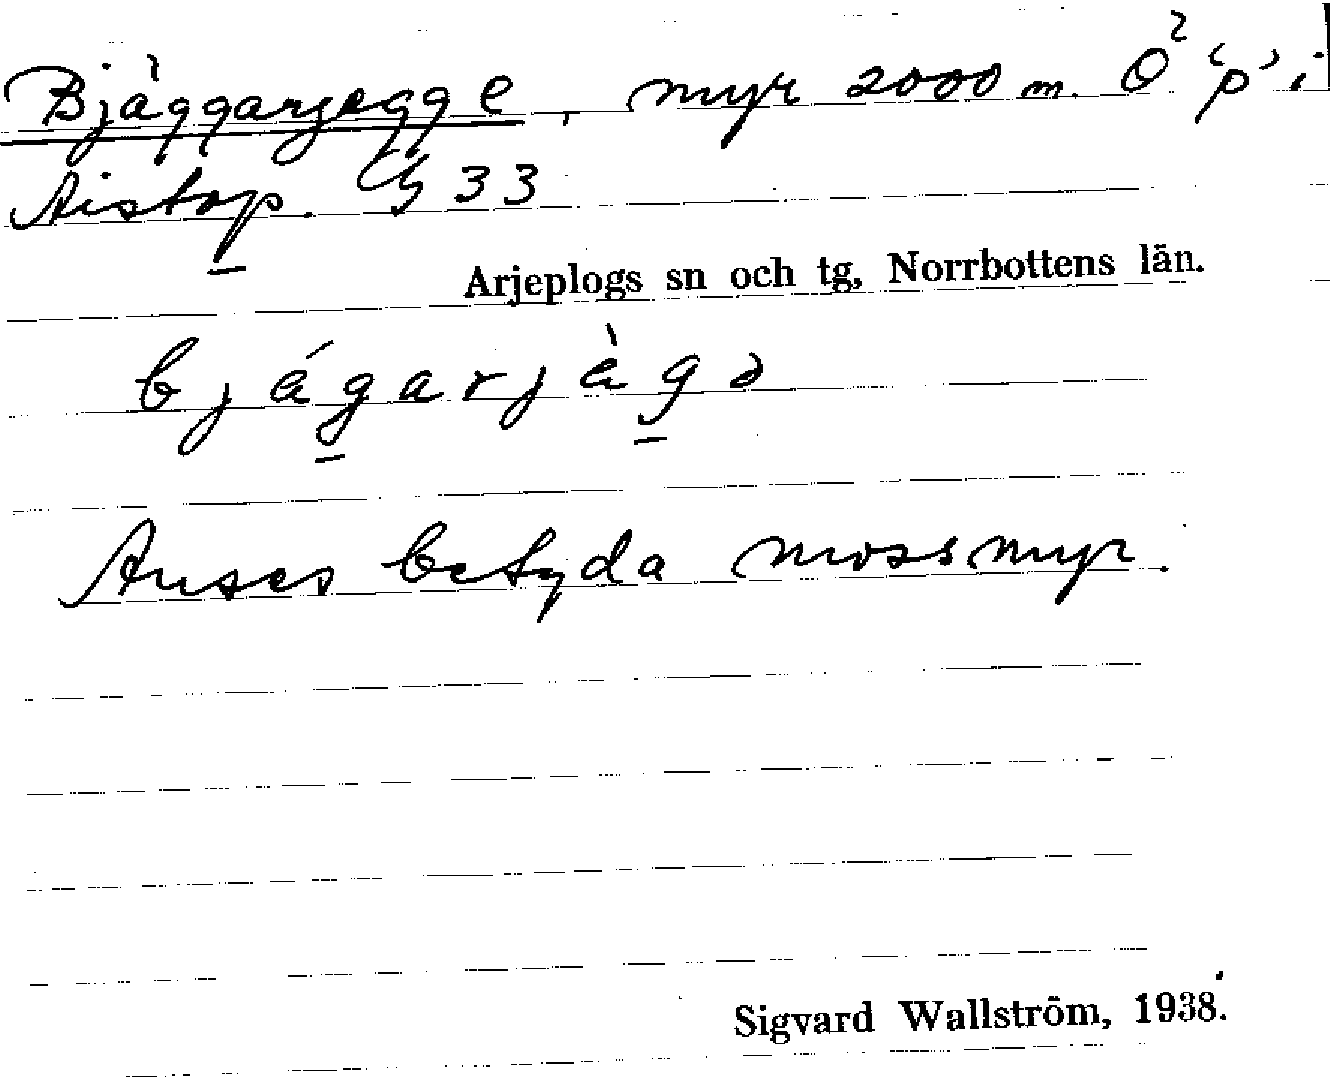 Bjàggarjegge, myr 2000 m. O² 'p' i
Aistop. G 33
Arjeplogs sn och tg, Norrbottens län.
bjágarjàgə
Anses betyda mossmyr.
Sigvard Wallström, 1938.